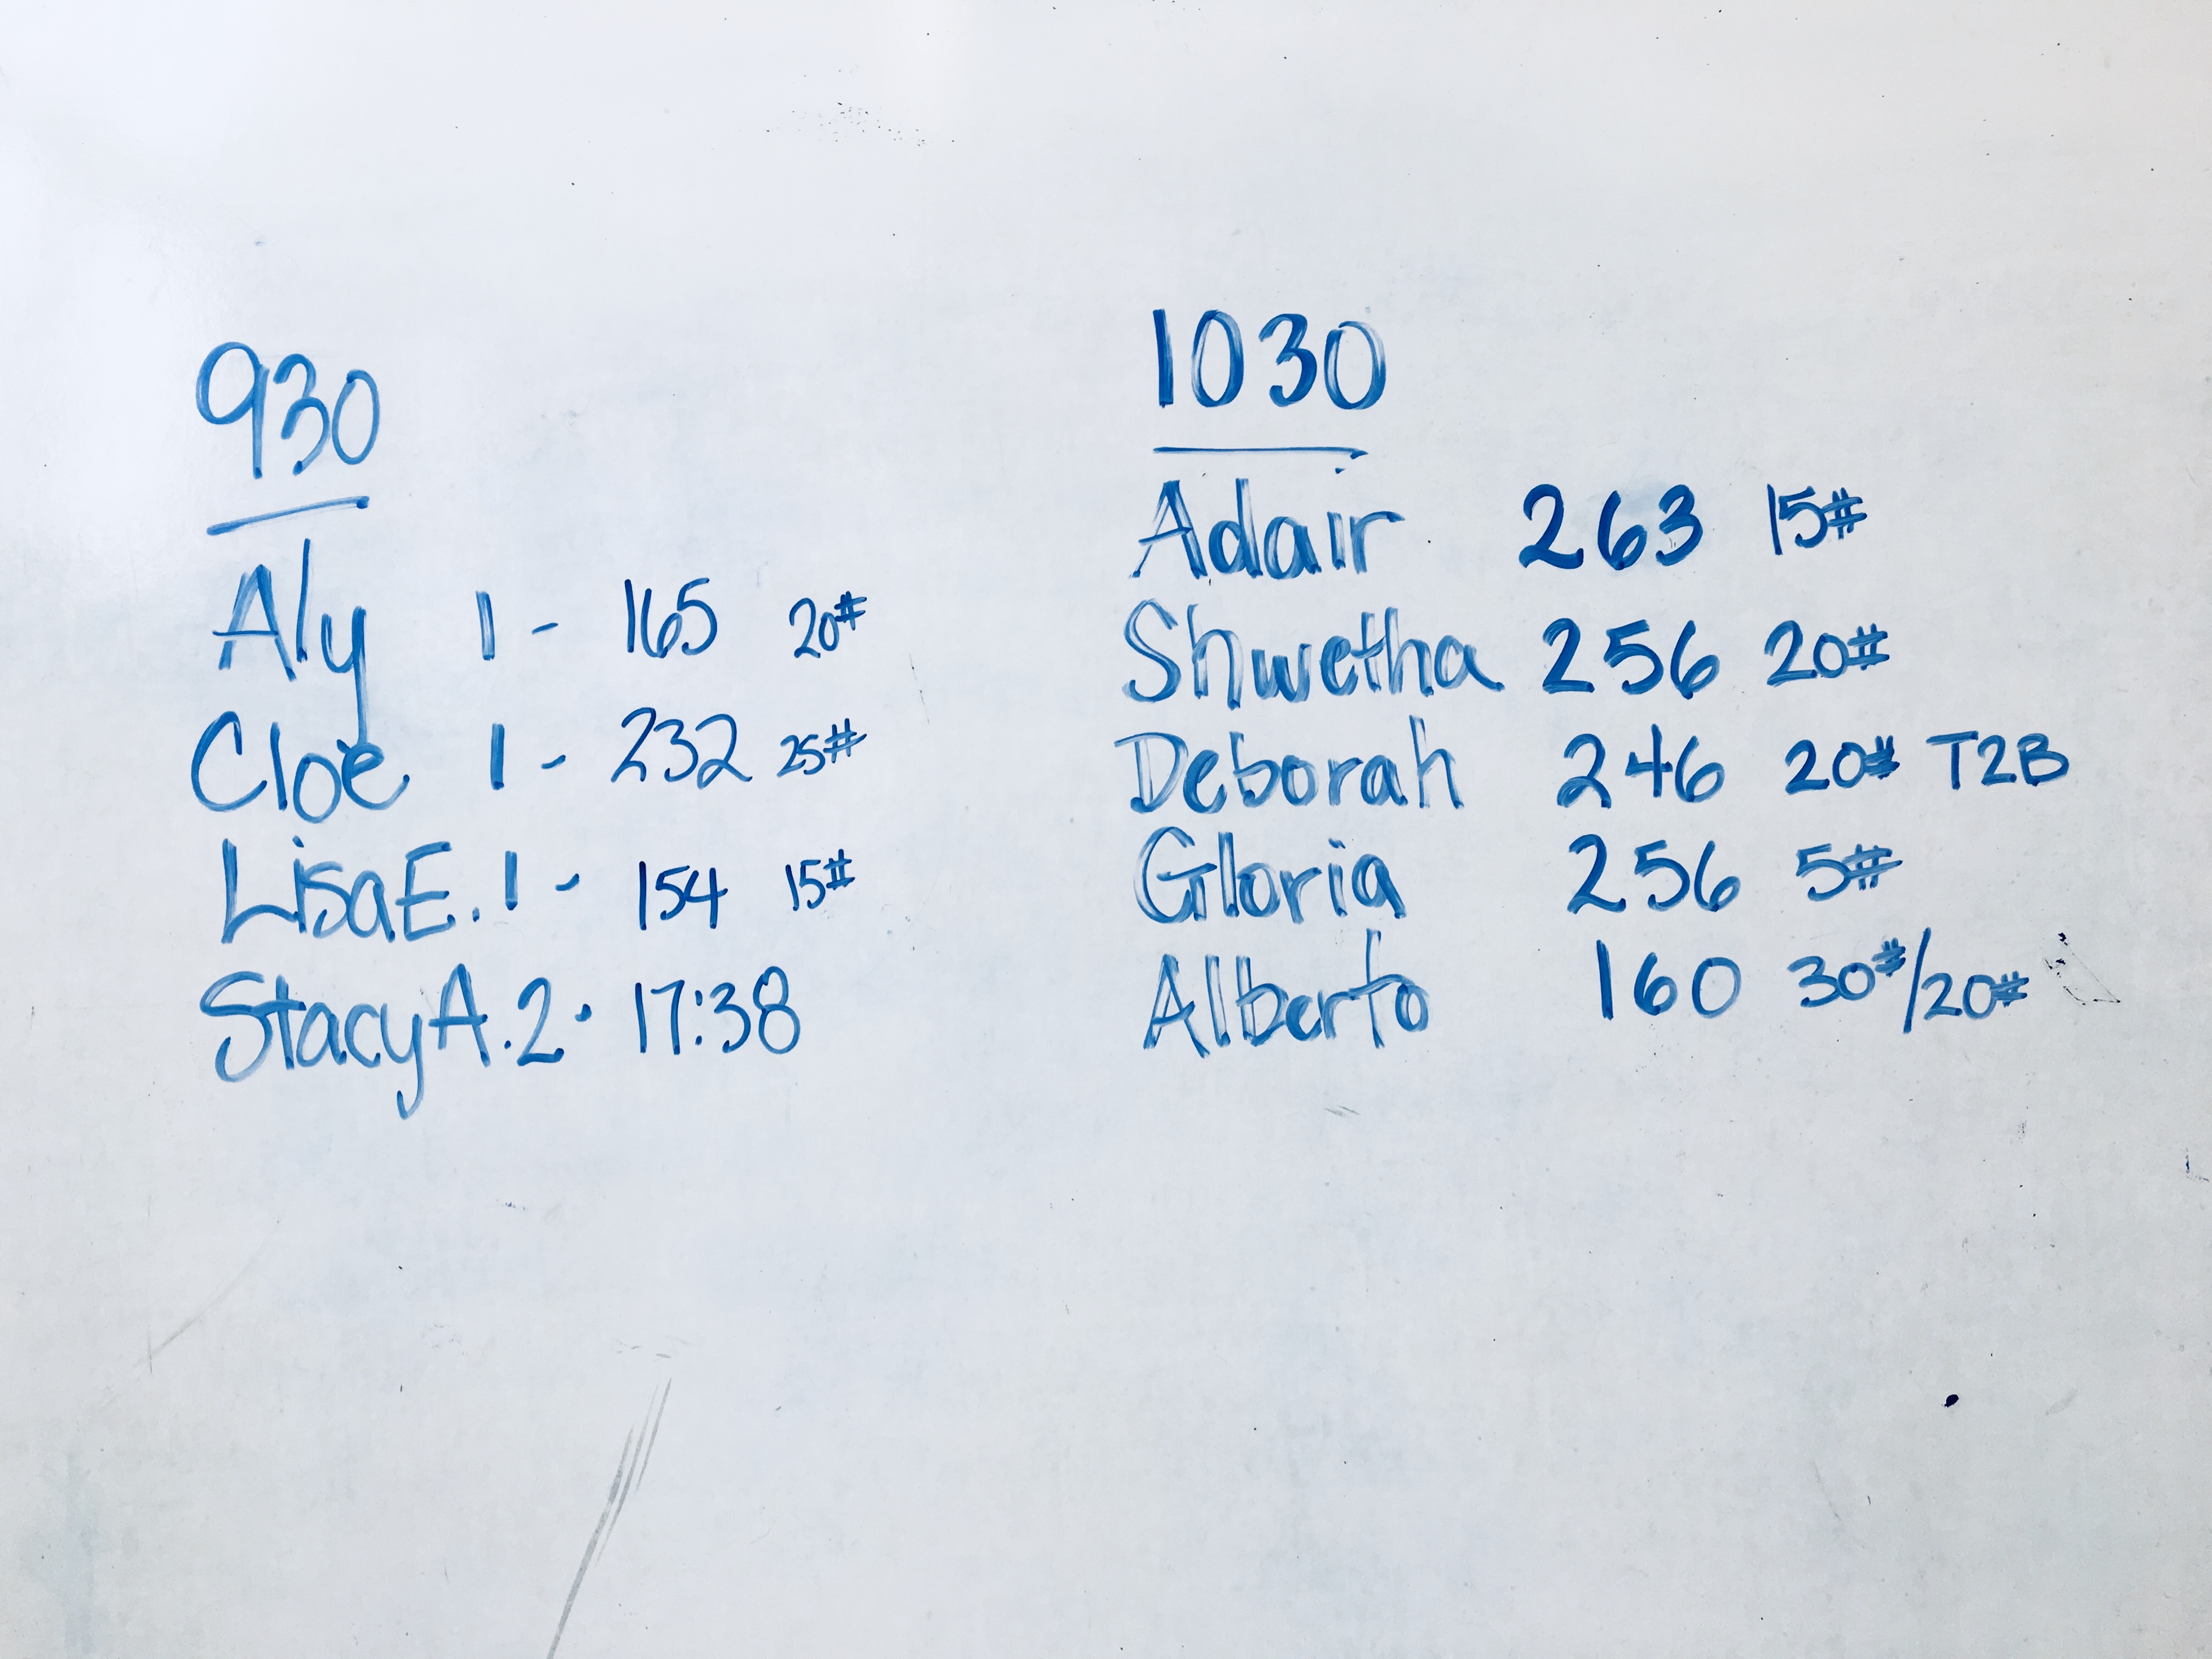 930
Aly 1 - 165 20#
Cloe 1 - 232 25#
Lisa E. 1 - 154 15#
Stacy A. 2 - 17:38
1030
Adair 263 15#
Shwetha 256 20#
Deborah 246 20# T2B
Gloria 256 5#
Alberto 160 30#/20#